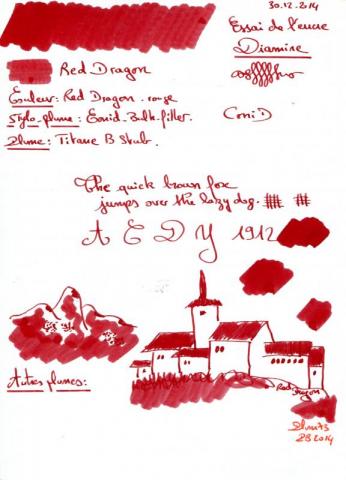 30.12.2014
Essai de l'encre
Diamine
Red Dragon
Couleur: Red Dragon - rouge
Stylo-plume: Conid Bulk-filler.
Plume: Titane B Stub.
ConiD
The quick brown fox
jumps over the lazy dog.
A E D Y 1912
Autres plumes:
Red Dragon
2014